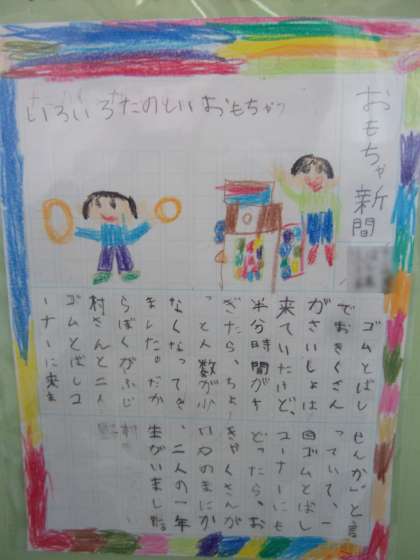 いろいろたのしいおもちゃっ
おもちゃ新聞
ゴムとばし
でおきくさん
がさいしょは
来ていたけど、
半分時間がす
ぎたら、ちょ
っと人数が少
なくなってき
ました。だか
らぼくがふじ
村さんと二人
ゴムとばしコ
ーナーに来ま
せんか」と言
っていて、一
回ゴムとばし
コーナーにも
どったら、お
きゃくさんが
いつのまにか
、二人の一年
生がいました。